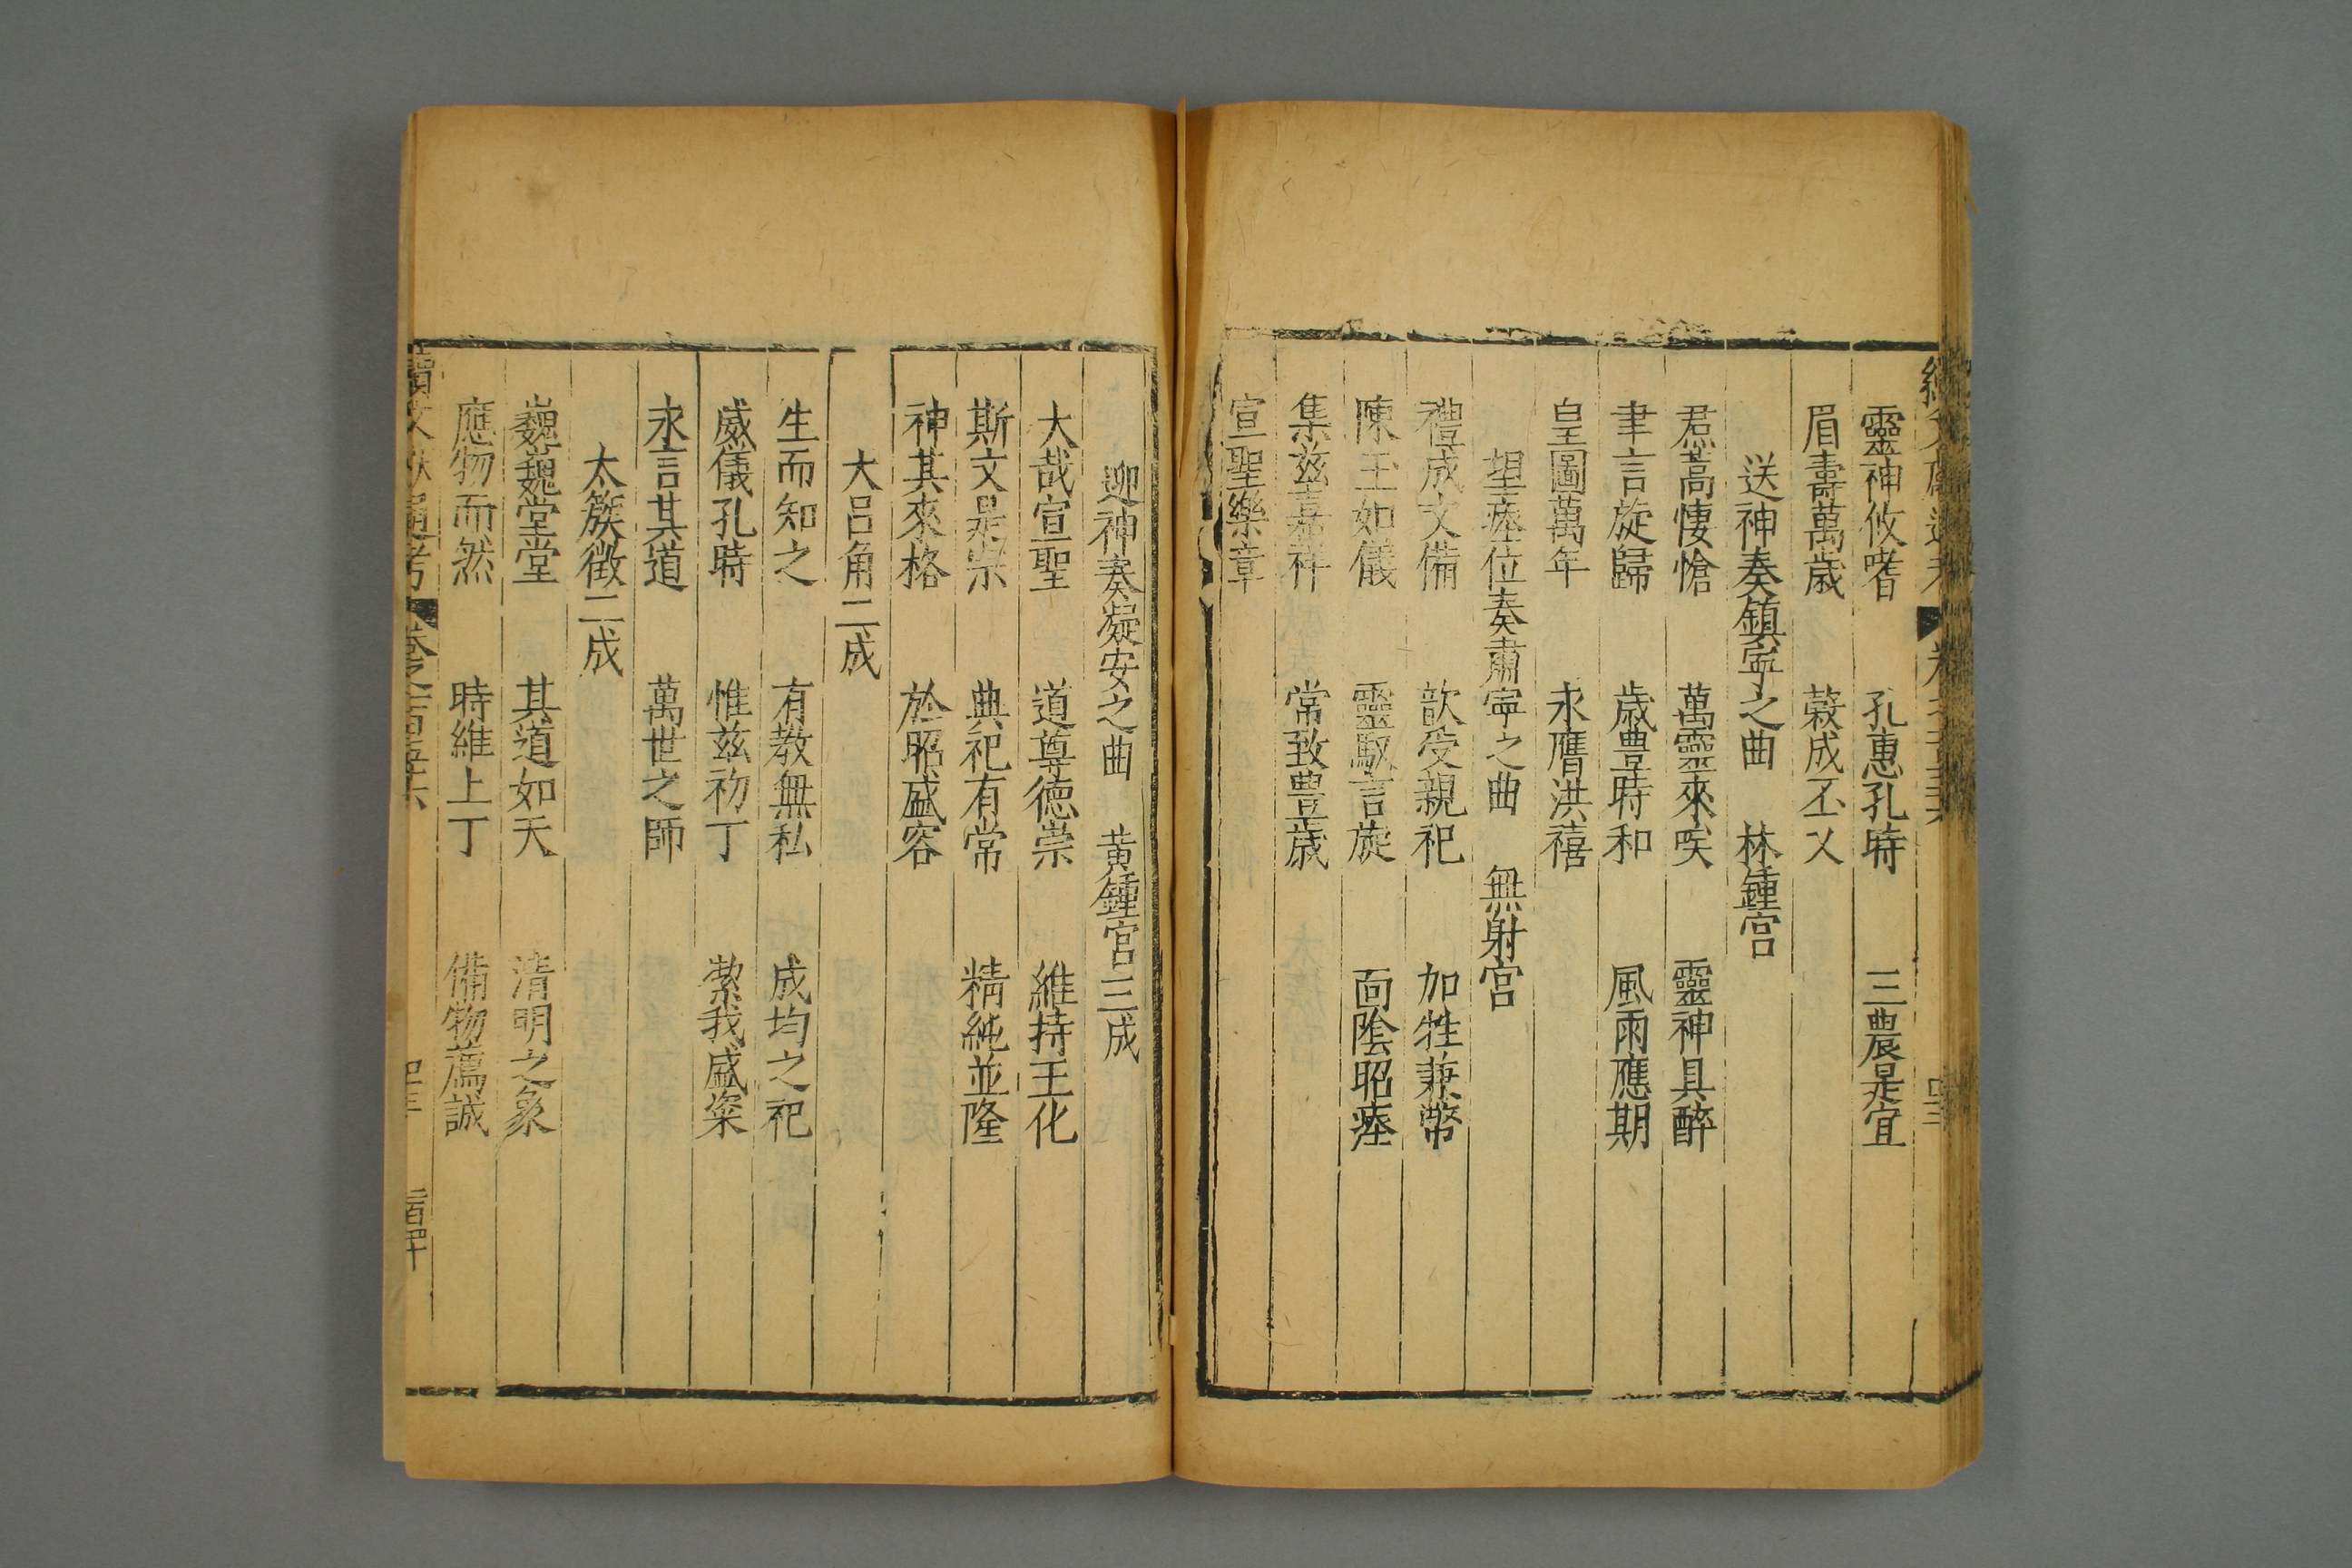 靈神攸嗜　孔惠孔時　三農是宜
眉壽萬歲　穀成丕乂
送神奏鎮寧之曲　林鍾宮
焄蒿悽愴　萬靈來唉　靈神具醉
聿言旋歸　歲豊時和　風雨應期
皇圖萬年　永膺洪禧
望瘞位奏肅寧之曲　無射宮
禮成文備　歆受親祀　加牲兼幣
陳玉如儀　靈馭言旋　面陰昭瘞
集茲嘉祥　常致豊歲
宣聖樂章
迎神奏凝安之曲　黄鍾宮三成
大哉宣聖　道尊德崇　維持王化
斯文是崇　典祀有常　精純並隆
神其來格　於昭盛容
大呂角二成
生而知之　有教無私　成均之祀
威儀孔時　惟茲初丁　潔我盛粢
永言其道　萬世之師
太簇徵二成
巍巍堂堂　其道如天　清明之象
應物而然　時維上丁　備物薦誠
續文獻通考